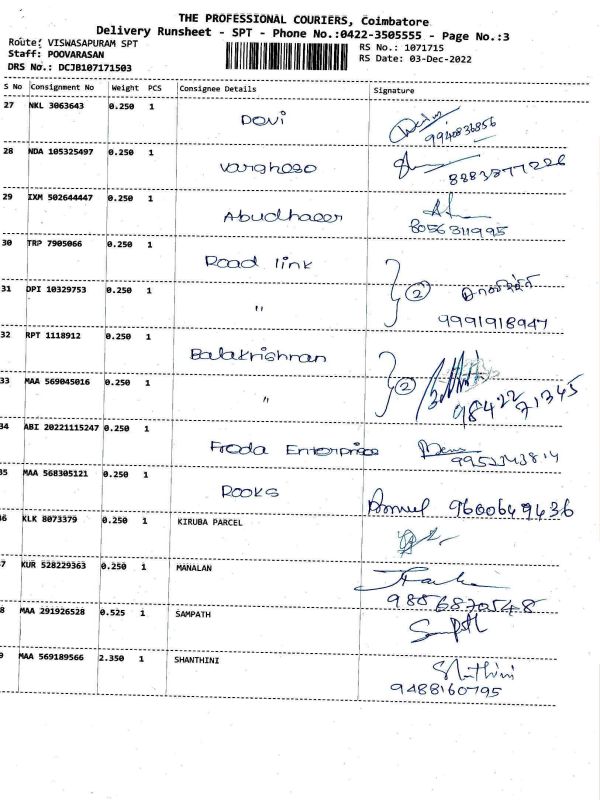 THE PROFESSIONAL COURIERS, Coimbatore
Delivery Runsheet - SPT - Phone No.:0422-3505555 - Page No.:3
Route: VISWASAPURAM SPT
Staff: POOVARASAN
DRS No.: DCJB107171503
RS No.: 1071715
RS Date: 03-Dec-2022
S No Consignment No Weight PCS Consignee Details Signature
27 NKL 3063643 0.250 1 Devi
9940836856
28 NDA 105325497 0.250 1 Varghese
8883877226
29 IXM 502644447 0.250 1 Abudhaeer
8056311995
30 TRP 7905066 0.250 1 Road link
31 DPI 10329753 0.250 1 " 2
9991918947
32 RPT 1118912 0.250 1 Balakrishnan
33 MAA 569045016 0.250 1 " 2
98422 71345
34 ABI 20221115247 0.250 1 Freda Enterprise
35 MAA 568305121 0.250 1 Rooks
9600649436
6 KLK 8073379 0.250 1 KIRUBA PARCEL
7 KUR 528229363 0.250 1 MANALAN
9886870548
8 MAA 291926528 0.525 1 SAMPATH
Sampath
9 MAA 569189566 2.350 1 SHANTHINI
9488160795